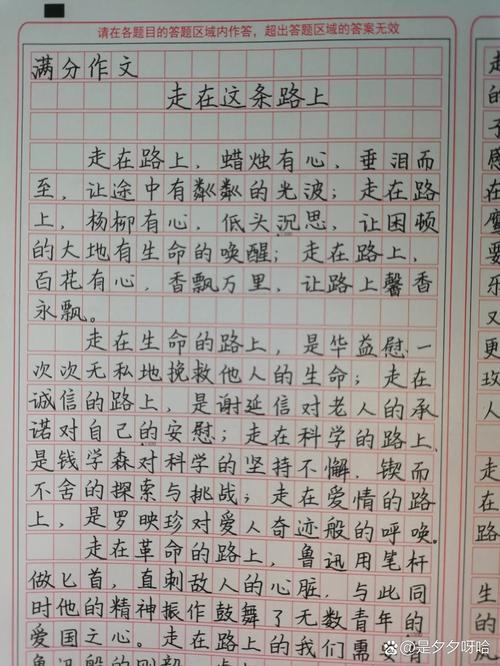 请在各题目的答题区域内作答，超出答题区域的答案无效
满分作文
走在这条路上
走在路上，蜡烛有心，垂泪而
至，让途中有粼粼的光波；走在路
上，杨柳有心，低头沉思，让困顿
的大地有生命的唤醒；走在路上，
百花有心，香飘万里，让路上馨香
永飘。
走在生命的路上，是华益慰一
次次无私地挽救他人的生命；走在
诚信的路上，是谢延信对老人的承
诺对自己的安慰；走在科学的路上，
是钱学森对科学的坚持不懈，锲而
不舍的探索与挑战；走在爱情的路
上，是罗映珍对爱人奇迹般的呼唤。
走在革命的路上，鲁迅用笔杆
做匕首，直刺敌人的心脏，与此同
时他的精神振作鼓舞了无数青年的
爱国之心。走在路上的我们需要有
鲁迅般的刚毅
走
的
子
感
雁
要
乐
又
更
玫
人
走
还
生
的
@是夕夕呀哈